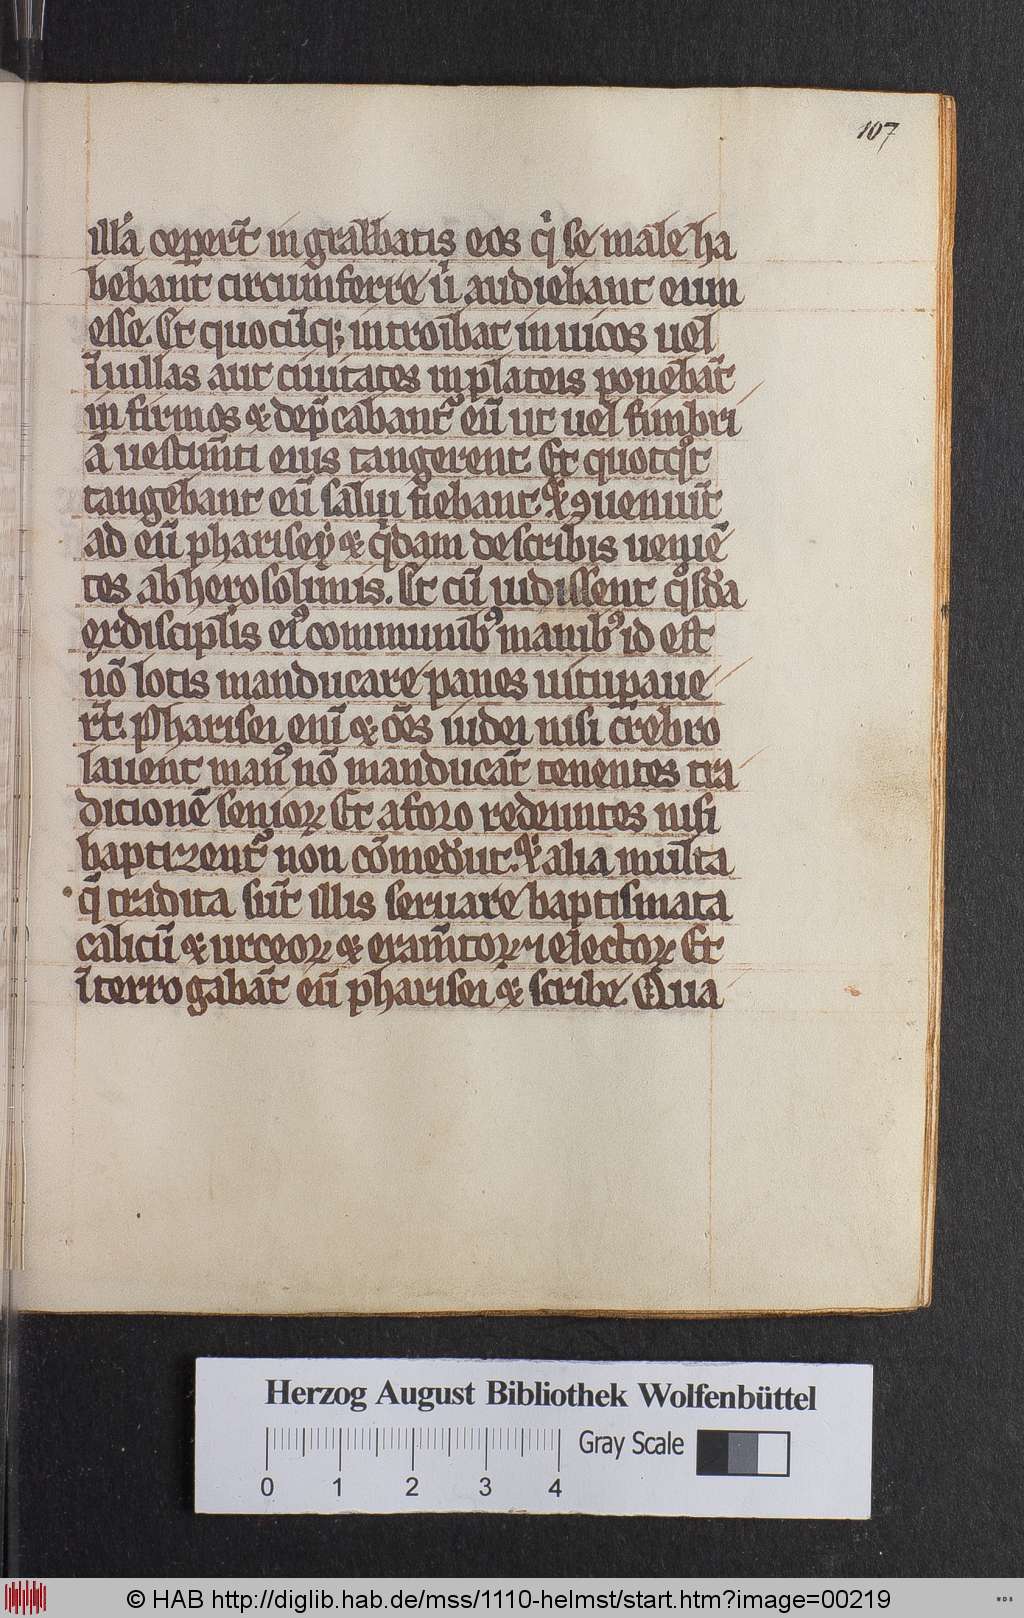 107
illa᷑ ceꝑert̄ in grabbatis eos qͥ se male ha
behant circumferre uͥ audiebant eum
esse. Et quocūqꝫ introibat in uicos uel
ī uillas aut ciuitates in plateis ponebāt
in firmos ⁊ dep̄cabantᷣ eū ut uel fimbri
ā uestimn̄ti eius tangerent. Et quotqͦt
tangebant eū salui fiebant. ⁊ ꝯueniūt
ad eū pharisey ⁊ qͥdam de scribis ueniē
tes ab herosolimis. Et cū uidissent qͦsda
ex disciplis eiꝰ communibꝰ manibꝰ id est
nō lotis manducare panes uituꝑaue
rt̄. Pharisei enī ⁊ oēs iudei nisi crebro
lauent manꝰ nō manducāt tenentes tra
dicionē senioꝝ Et a foro redeuntes nisi
baptizentᷣ non cōmedūt. ⁊ alia multa
q̄ tradita sūt illis seruare baptismata
calicū ⁊ urceoꝝ ⁊ eramn̄toꝝ ⁊ lectoꝝ Et
īterrogabāt eū pharisei ⁊ scribe. Qua
Herzog August Bibliothek Wolfenbüttel
Gray Scale
0 1 2 3 4
© HAB http://diglib.hab.de/mss/1110-helmst/start.htm?image=00219